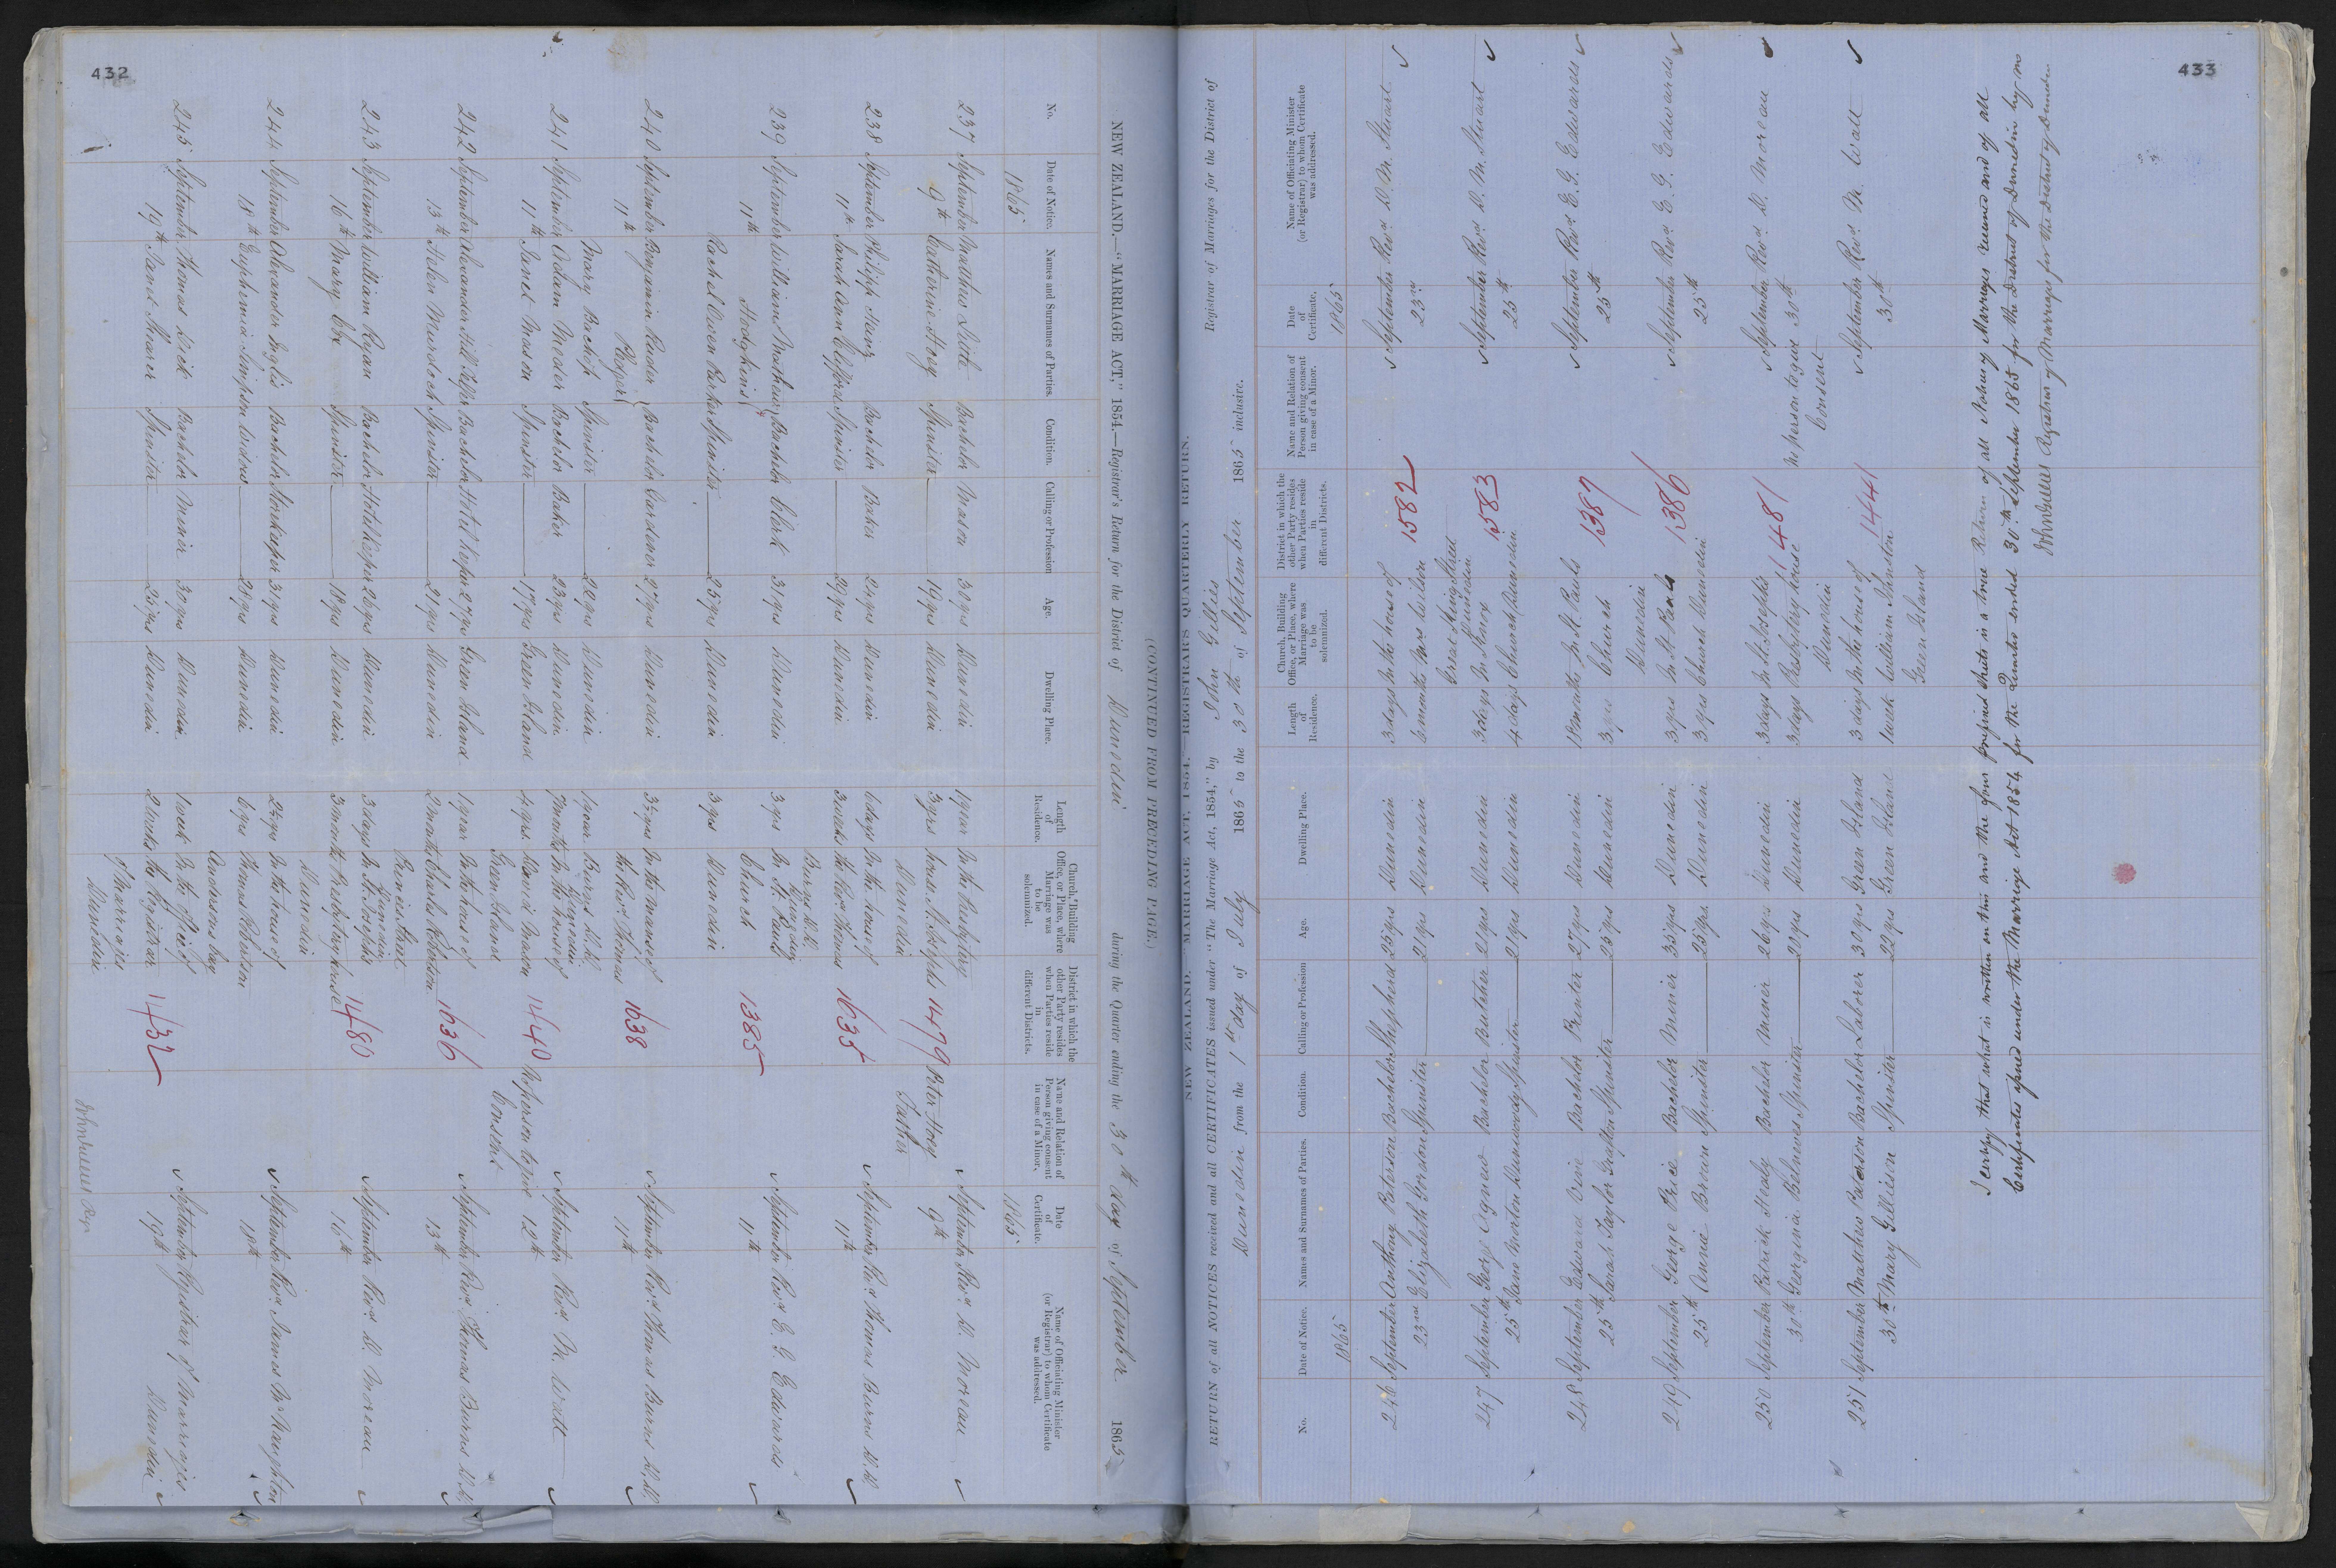 432
NEW ZEALAND.—"MARRIAGE ACT," 1854.—Registrar's Return for the District of Dunedin during the Quarter ending the 30th day of September 1865
(CONTINUED FROM PRECEDING PAGE.)
No. Date of Notice. Names and Surnames of Parties. Condition. Calling or Profession Age. Dwelling Place. Length of Residence. Church, Building Office, or Place, where Marriage was to be solemnized. District in which the other Party resides when Parties reside in different Districts. Name and Relation of Person giving consent in case of a Minor. Date of Certificate. Name of Officiating Minister (or Registrar) to whom Certificate was addressed.
1865 1865
237 September Matthew Bachelor Mason 30 yrs Dunedin 1 year In the Presbytery September Revd. D. Moreau
9th Catherine Hoey Spinster 19 yrs Dunedin 3 yrs house St. Josephs 1479 Peter Hoey 9th
Dunedin Father
238 September Philipp Bachelor Baker 24 yrs Dunedin 10 days In the house of September Revd. Thomas Burns D.D.
11th Sarah Ann Clifford Spinster 20 yrs Dunedin 3 weeks the Revd Thomas 1635 11th
Burns D.D.
Dunedin
239 September William Bachelor Clerk 31 yrs Dunedin 3 yrs In St. Pauls September Revd. E. G. Edwards
11th Hodgkins Church 1385 11th
Rachel Owen Parker Spinster 25 yrs Dunedin 3 yrs Dunedin
240 September Benjamin Reader Bachelor Gardener 27 yrs Dunedin 3½ yrs In the manse of September Revd. Thomas Burns D.D.
11th the Revd Thomas 1638 11th
Mary Spinster 22 yrs Dunedin 1 year Burns D.D.
Dunedin
241 September Adam Bachelor Baker 23 yrs Dunedin 7 months In the house of September Revd. M. Watt
11th Janet Mason Spinster 17 yrs Green Island 4 yrs David Mason 1440 No person to give 12th
Green Island Consent
242 September Alexander Hill Bachelor Hotel Keeper 27 yrs Green Island 1 year In the house of September Revd. Thomas Burns D.D.
13th Helen Murdoch Spinster 21 yrs Dunedin 2 months Charles Robertson 1636 13th
Princes Street
Dunedin
243 September William Ryan Bachelor Hotel Keeper 26 yrs Dunedin 3 days In St. Josephs September Revd. D. Moreau
16th Mary Spinster 18 yrs Dunedin 3 months Presbytery house 1480 16th
Dunedin
244 September Alexander Inglis Bachelor Storekeeper 31 yrs Dunedin 2½ yrs In the house of September Revd. James McNaughton
18th Euphemia Simpson Widow 21 yrs Dunedin 6 yrs Thomas Robertson 18th
Andersons bay
245 September Thomas Bachelor Miner 30 yrs Dunedin 1 week In the office of September Registrar of Marriages
19th Janet Shearer Spinster 25 yrs Dunedin 2 weeks the Registrar 1432 19th Dunedin
of Marriages
Dunedin
433
NEW ZEALAND.—"MARRIAGE ACT, 1854."—REGISTRAR'S QUARTERLY RETURN.
RETURN of all NOTICES received and all CERTIFICATES issued under "The Marriage Act, 1854," by John Gillies Registrar of Marriages for the District of
Dunedin from the 1st day of July 1865 to the 30th of September 1865 inclusive.
No. Date of Notice. Names and Surnames of Parties. Condition. Calling or Profession Age. Dwelling Place. Length of Residence. Church, Building Office, or Place, where Marriage was to be solemnized. District in which the other Party resides when Parties reside in different Districts. Name and Relation of Person giving consent in case of a Minor. Date of Certificate. Name of Officiating Minister (or Registrar) to whom Certificate was addressed.
1865 1865
246 September Anthony Paterson Bachelor Shepherd 25 yrs Dunedin 3 days In the house of September Revd. D. M. Stuart
23rd Elizabeth Gordon Spinster 21 yrs Dunedin 6 months Mrs Wilson 1582 23rd
Great King Street
Dunedin
247 September George Agnew Bachelor Butcher 21 yrs Dunedin 3 days In Knox September Revd. D. M. Stuart
25th Jane Morton Dunwoody Spinster 21 yrs Dunedin 4 days Church Dunedin 1583 25th
248 September Edward Vivie Bachelor Printer 27 yrs Dunedin 18 months In St Pauls September Revd. E. G. Edwards
25th Sarah Taylor Grafton Spinster 25 yrs Dunedin 3 yrs Church 1387 25th
Dunedin
249 September George Price Bachelor Miner 35 yrs Dunedin 3 yrs In St Pauls September Revd. E. G. Edwards
25th Annie Brown Spinster 25 yrs Dunedin 3 yrs Church Dunedin 1386 25th
250 September Patrick Heady Bachelor Miner 26 yrs Dunedin 3 days In St. Joseph's September Revd. D. Moreau
30th Georgina Spinster 20 yrs Dunedin 3 days Presbytery house 1481 No person to give 30th
Dunedin Consent
251 September Matthew Paterson Bachelor Laborer 30 yrs Green Island 3 days In the house of September Revd. M. Watt
30th Mary Gillieson Spinster 22 yrs Green Island 1 week William 1441 30th
Green Island
I certify that what is written on this and the four prefixed sheets is a true Return of all Notices of Marriages received and of all
Certificates issued under the Marriage Act 1854 for the Quarter ended 30th September 1865 for the District of Dunedin by me
John Gillies Registrar of Marriages for the District of Dunedin